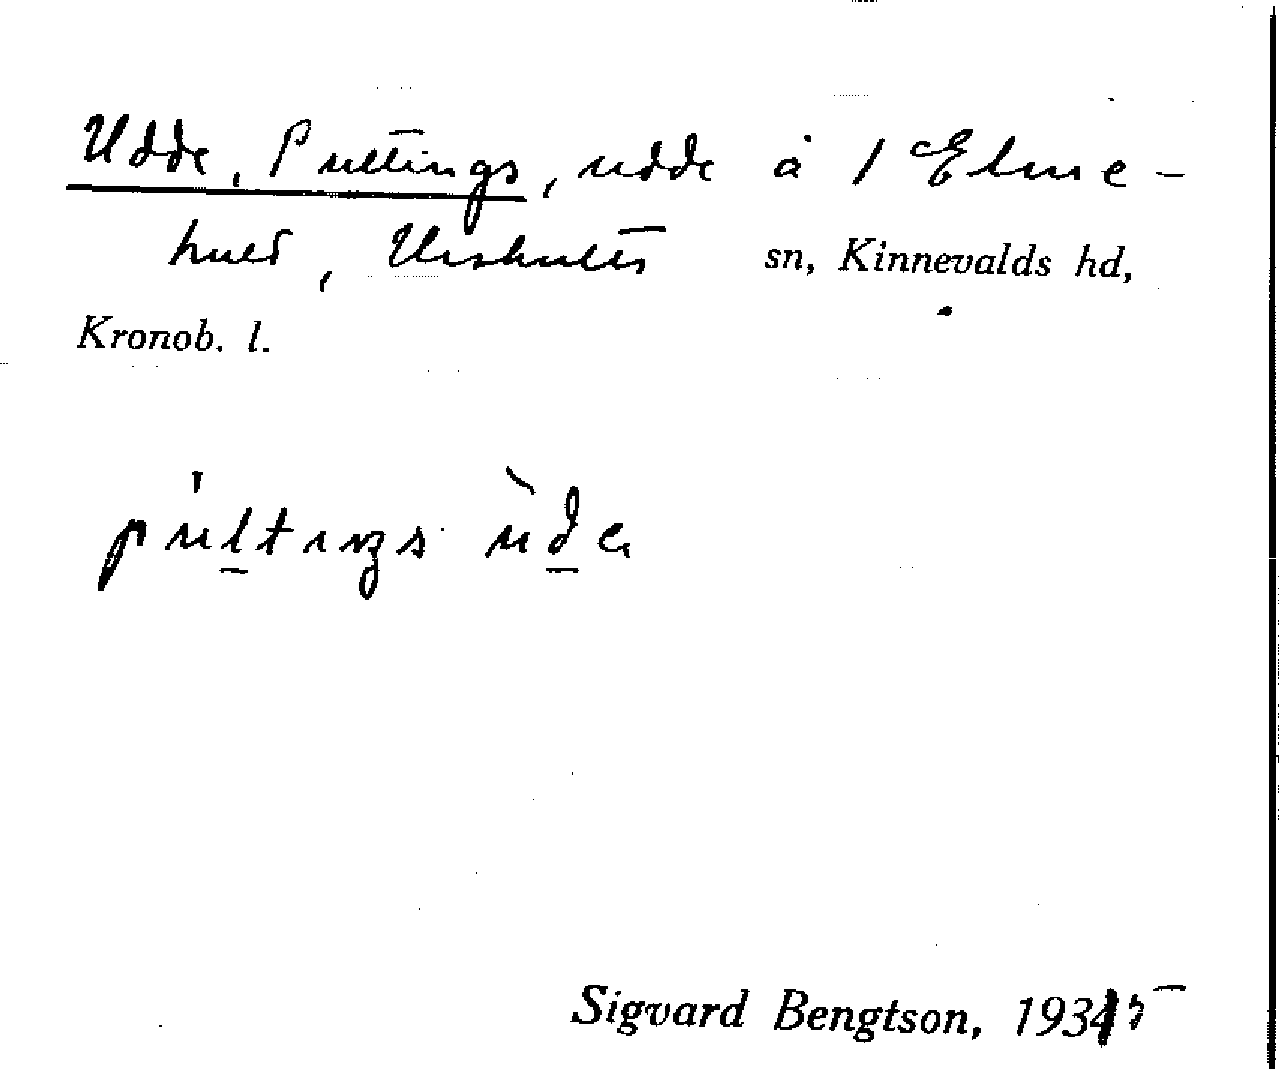 Udde, Pultings, udde å 1 Elme-
hult, Urshults sn, Kinnevalds hd,
Kronob. l.
pultıŋs uda
Sigvard Bengtson, 1935